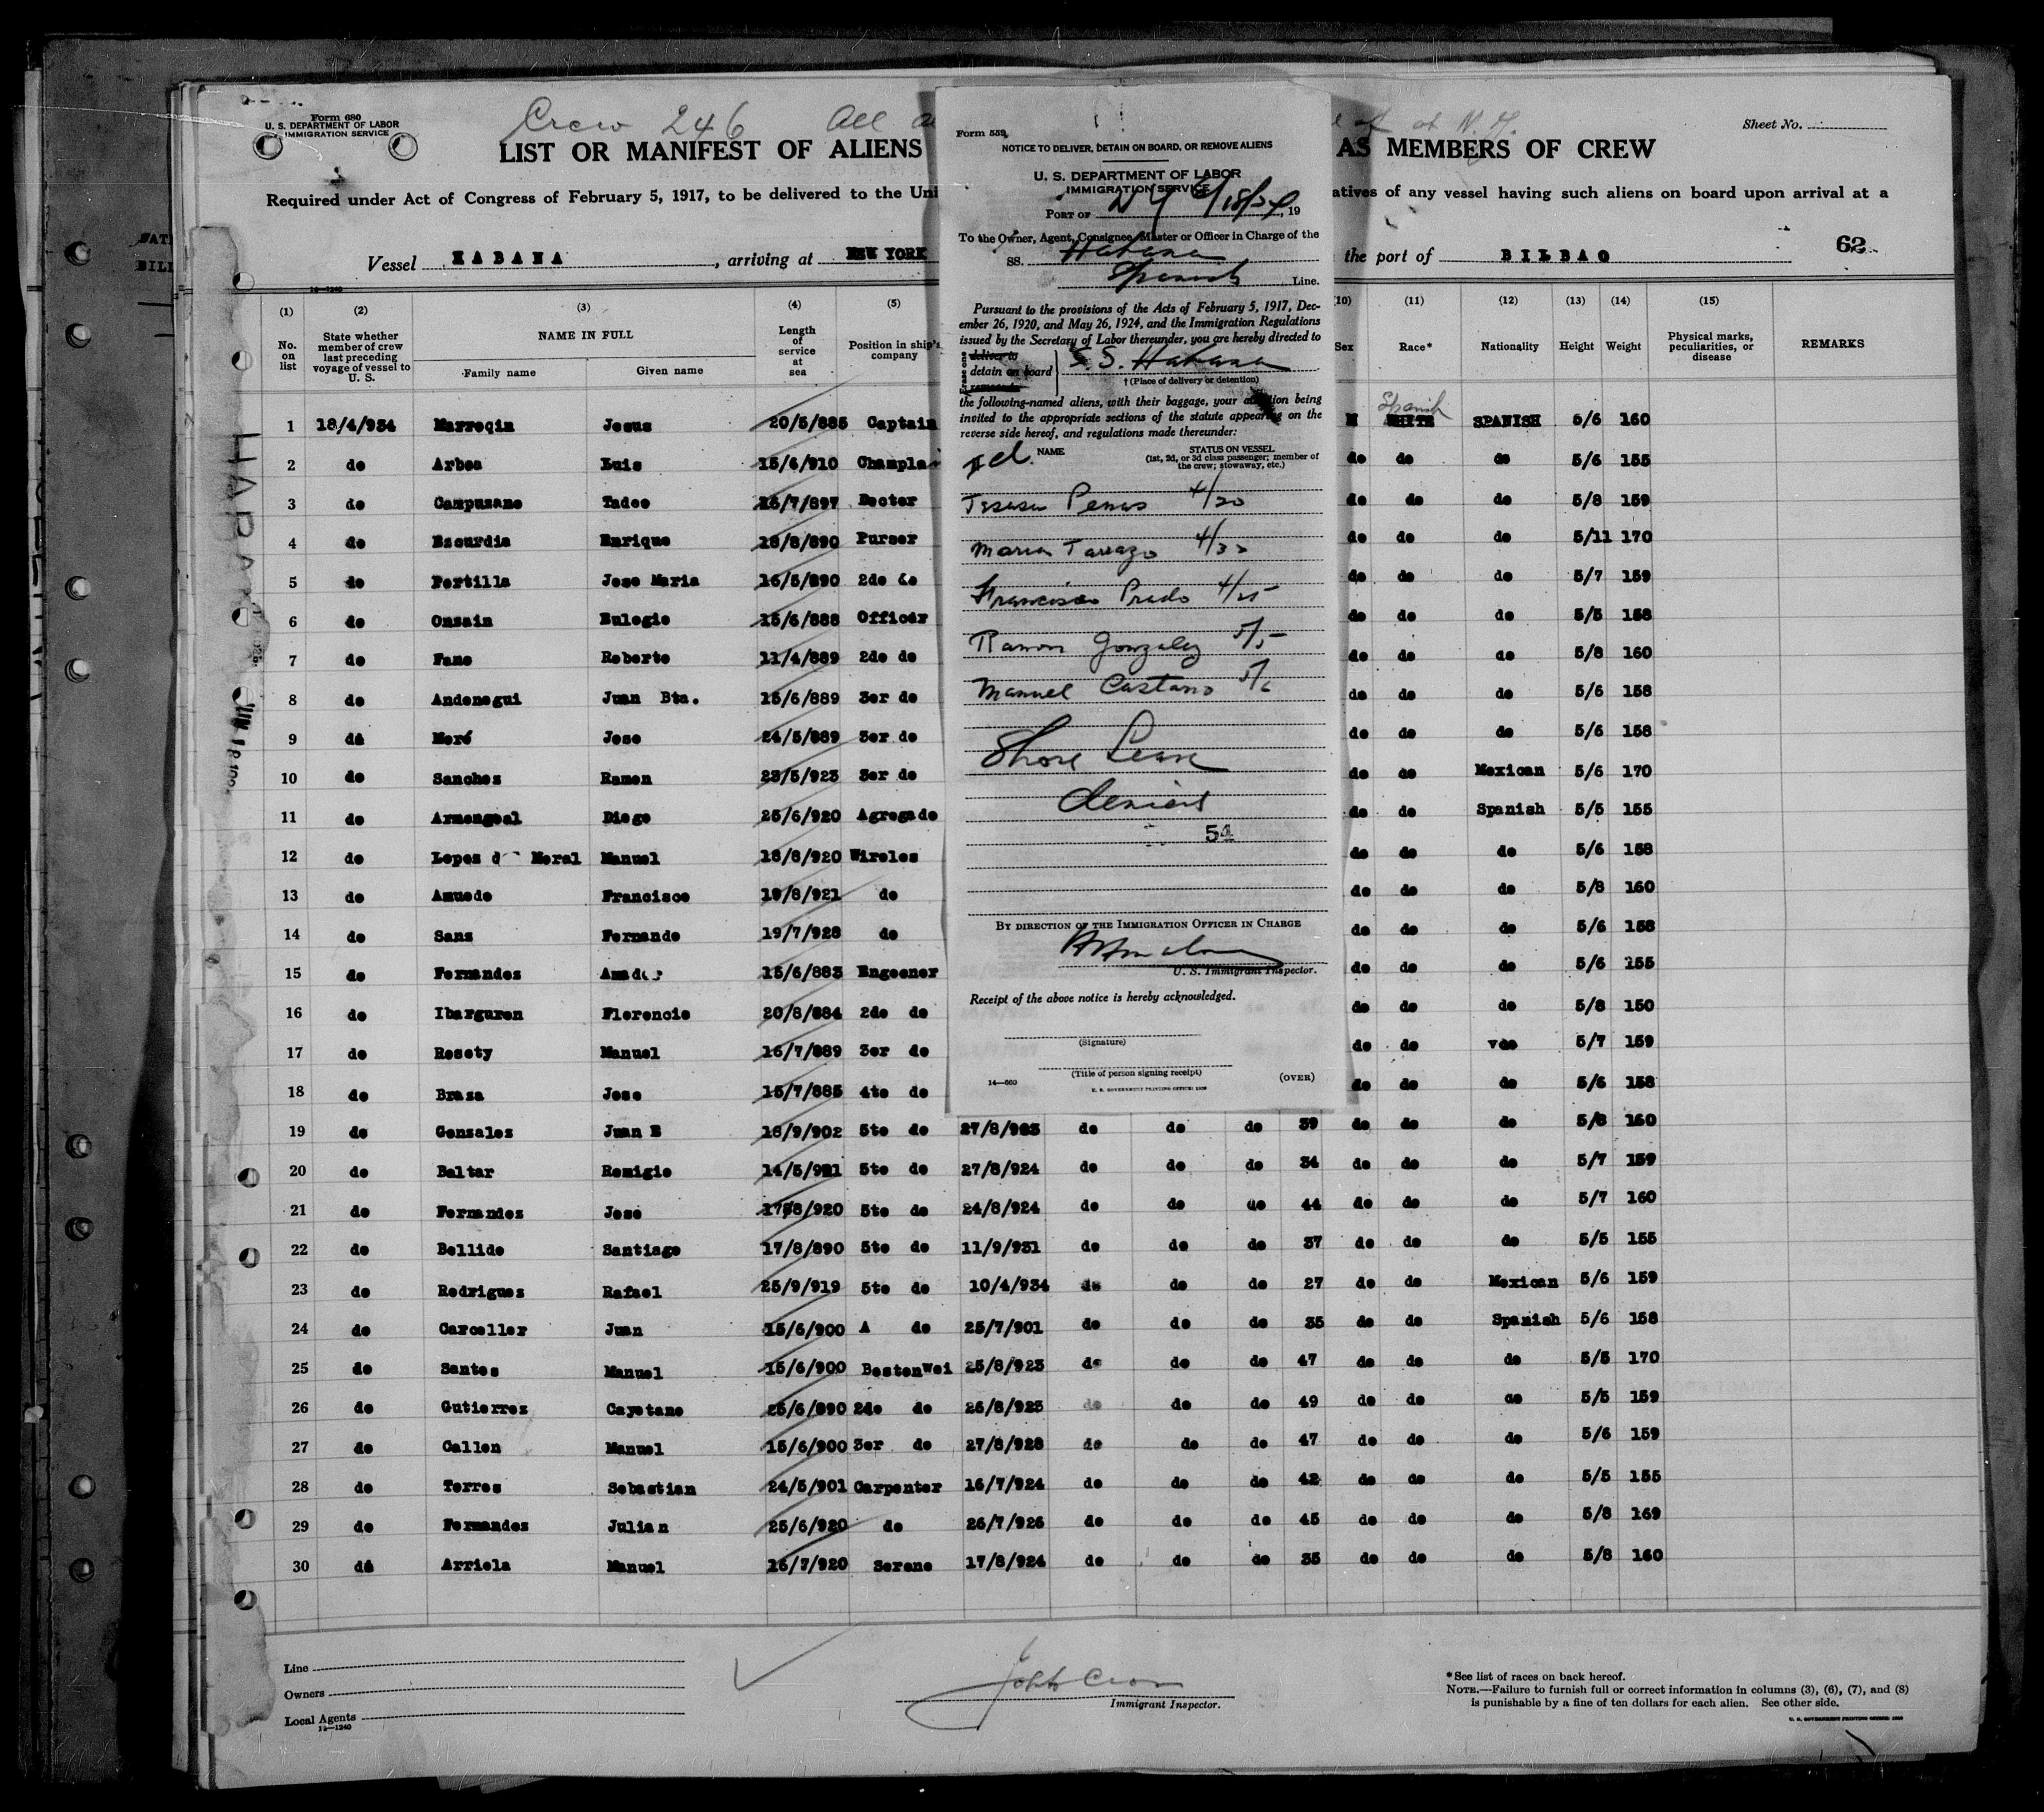 Form 680
U. S. DEPARTMENT OF LABOR
IMMIGRATION SERVICE
Crew 246 All
at N. Y.
Sheet No.
LIST OR MANIFEST OF ALIENS
AS MEMBERS OF CREW
Required under Act of Congress of February 5, 1917, to be delivered to the Uni
atives of any vessel having such aliens on board upon arrival at a
Vessel HABANA, arriving at NEW YORK
the port of BILBAO 62
14—1240
(1) (2) (3) (4) (5) (10) (11) (12) (13) (14) (15)
No. on list
State whether member of crew last preceding voyage of vessel to U. S.
NAME IN FULL
Family name Given name
Length of service at sea
Position in ship's company
Sex Race* Nationality Height Weight
Physical marks, peculiarities, or disease
REMARKS
Spanish
1 18/4/934 Marroqin Jesus 20/5/885 Captain M WHITE SPANISH 5/6 160
2 do Arbea Luis 15/6/910 Champla do do do 5/6 155
3 do Campuzano Tadeo 16/7/897 Doctor do do do 5/8 159
4 do Escurdia Enrique 18/8/890 Purser do do do 5/11 170
5 do Portilla Jose Maria 16/5/890 2do do do do do 5/7 159
6 do Onzain Eulogio 15/6/888 Officer do do do 5/5 158
7 do Fano Roberto 11/4/889 2do do do do do 5/8 160
8 do Andonegui Juan Bta. 15/6/889 3er do do do do 5/6 158
9 do Moré Jose 24/5/889 3er do do do do 5/6 158
10 do Sanchez Ramon 23/5/923 3er do do do Mexican 5/6 170
11 do Armengoal Diego 25/6/920 Agregado do do Spanish 5/5 155
12 do Lopez d Moral Manuel 18/8/920 Wireles do do do 5/6 158
13 do Amuedo Francisco 19/8/921 do do do do 5/8 160
14 do Sanz Fernando 19/7/928 do do do do 5/6 158
15 do Fernandez Amador 15/6/883 Engeener do do do 5/6 155
16 do Ibarguren Florencio 20/8/884 2do do do do do 5/8 150
17 do Rosety Manuel 16/7/889 3er do do do do 5/7 159
18 do Braza Jose 15/7/885 4to do do do do 5/6 158
19 do Gonzalez Juan B 18/9/902 5to do 27/8/923 do do do 39 do do do 5/8 160
20 do Baltar Remigio 14/5/921 5to do 27/8/924 do do do 34 do do do 5/7 159
21 do Fernandez Jose 17/8/920 5to do 24/8/924 do do do 44 do do do 5/7 160
22 do Bellido Santiago 17/8/890 5to do 11/9/931 do do do 37 do do do 5/5 155
23 do Rodriguez Rafael 25/9/919 5to do 10/4/934 do do do 27 do do Mexican 5/6 159
24 do Carceller Juan 15/6/900 A do 25/7/901 do do do 35 do do Spanish 5/6 158
25 do Santos Manuel 15/6/900 BostenWei 25/8/923 do do do 47 do do do 5/5 170
26 do Gutierrez Cayetano 25/6/890 2do do 26/8/923 do do do 49 do do do 5/5 159
27 do Callon Manuel 15/6/900 3er do 27/8/928 do do do 47 do do do 5/6 159
28 do Torres Sebastian 24/5/901 Carpenter 16/7/924 do do do 42 do do do 5/5 155
29 do Fernandez Julian 25/6/920 do 26/7/926 do do do 45 do do do 5/8 169
30 do Arriola Manuel 16/7/920 Sereno 17/8/924 do do do 35 do do do 5/8 160
Form 559
NOTICE TO DELIVER, DETAIN ON BOARD, OR REMOVE ALIENS
U. S. DEPARTMENT OF LABOR
IMMIGRATION SERVICE
PORT OF NY 6/18/34, 19
To the Owner, Agent, Consignee, Master or Officer in Charge of the
SS. Habana
Spanish Line.
Pursuant to the provisions of the Acts of February 5, 1917, Dec-
ember 26, 1920, and May 26, 1924, and the Immigration Regulations
issued by the Secretary of Labor thereunder, you are hereby directed to
Erase one
deliver to
detain on board S.S. Habana
remove to
† (Place of delivery or detention)
the following-named aliens, with their baggage, your attention being
invited to the appropriate sections of the statute appearing on the
reverse side hereof, and regulations made thereunder:
NAME STATUS ON VESSEL
(1st, 2d, or 3d class passenger; member of
the crew; stowaway, etc.)
Penas 4/20
Maria Tarrazo 4/22
Francisco Prado 4/25
Ramon Gonzalez 5/5
Manuel Castano 5/6
Shore Leave
denied
54
BY DIRECTION OF THE IMMIGRATION OFFICER IN CHARGE
U. S. Immigrant Inspector.
Receipt of the above notice is hereby acknowledged.
(Signature)
(Title of person signing receipt)
14—660 (OVER)
U. S. GOVERNMENT PRINTING OFFICE
HABA
JUN 18
Line
Owners
Local Agents
14—1240
Immigrant Inspector.
*See list of races on back hereof.
NOTE.—Failure to furnish full or correct information in columns (3), (6), (7), and (8)
is punishable by a fine of ten dollars for each alien. See other side.
U. S. GOVERNMENT PRINTING OFFICE